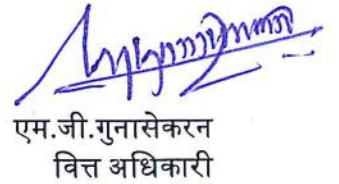 एम.जी.गुनासेकरन
वित्त अधिकारी